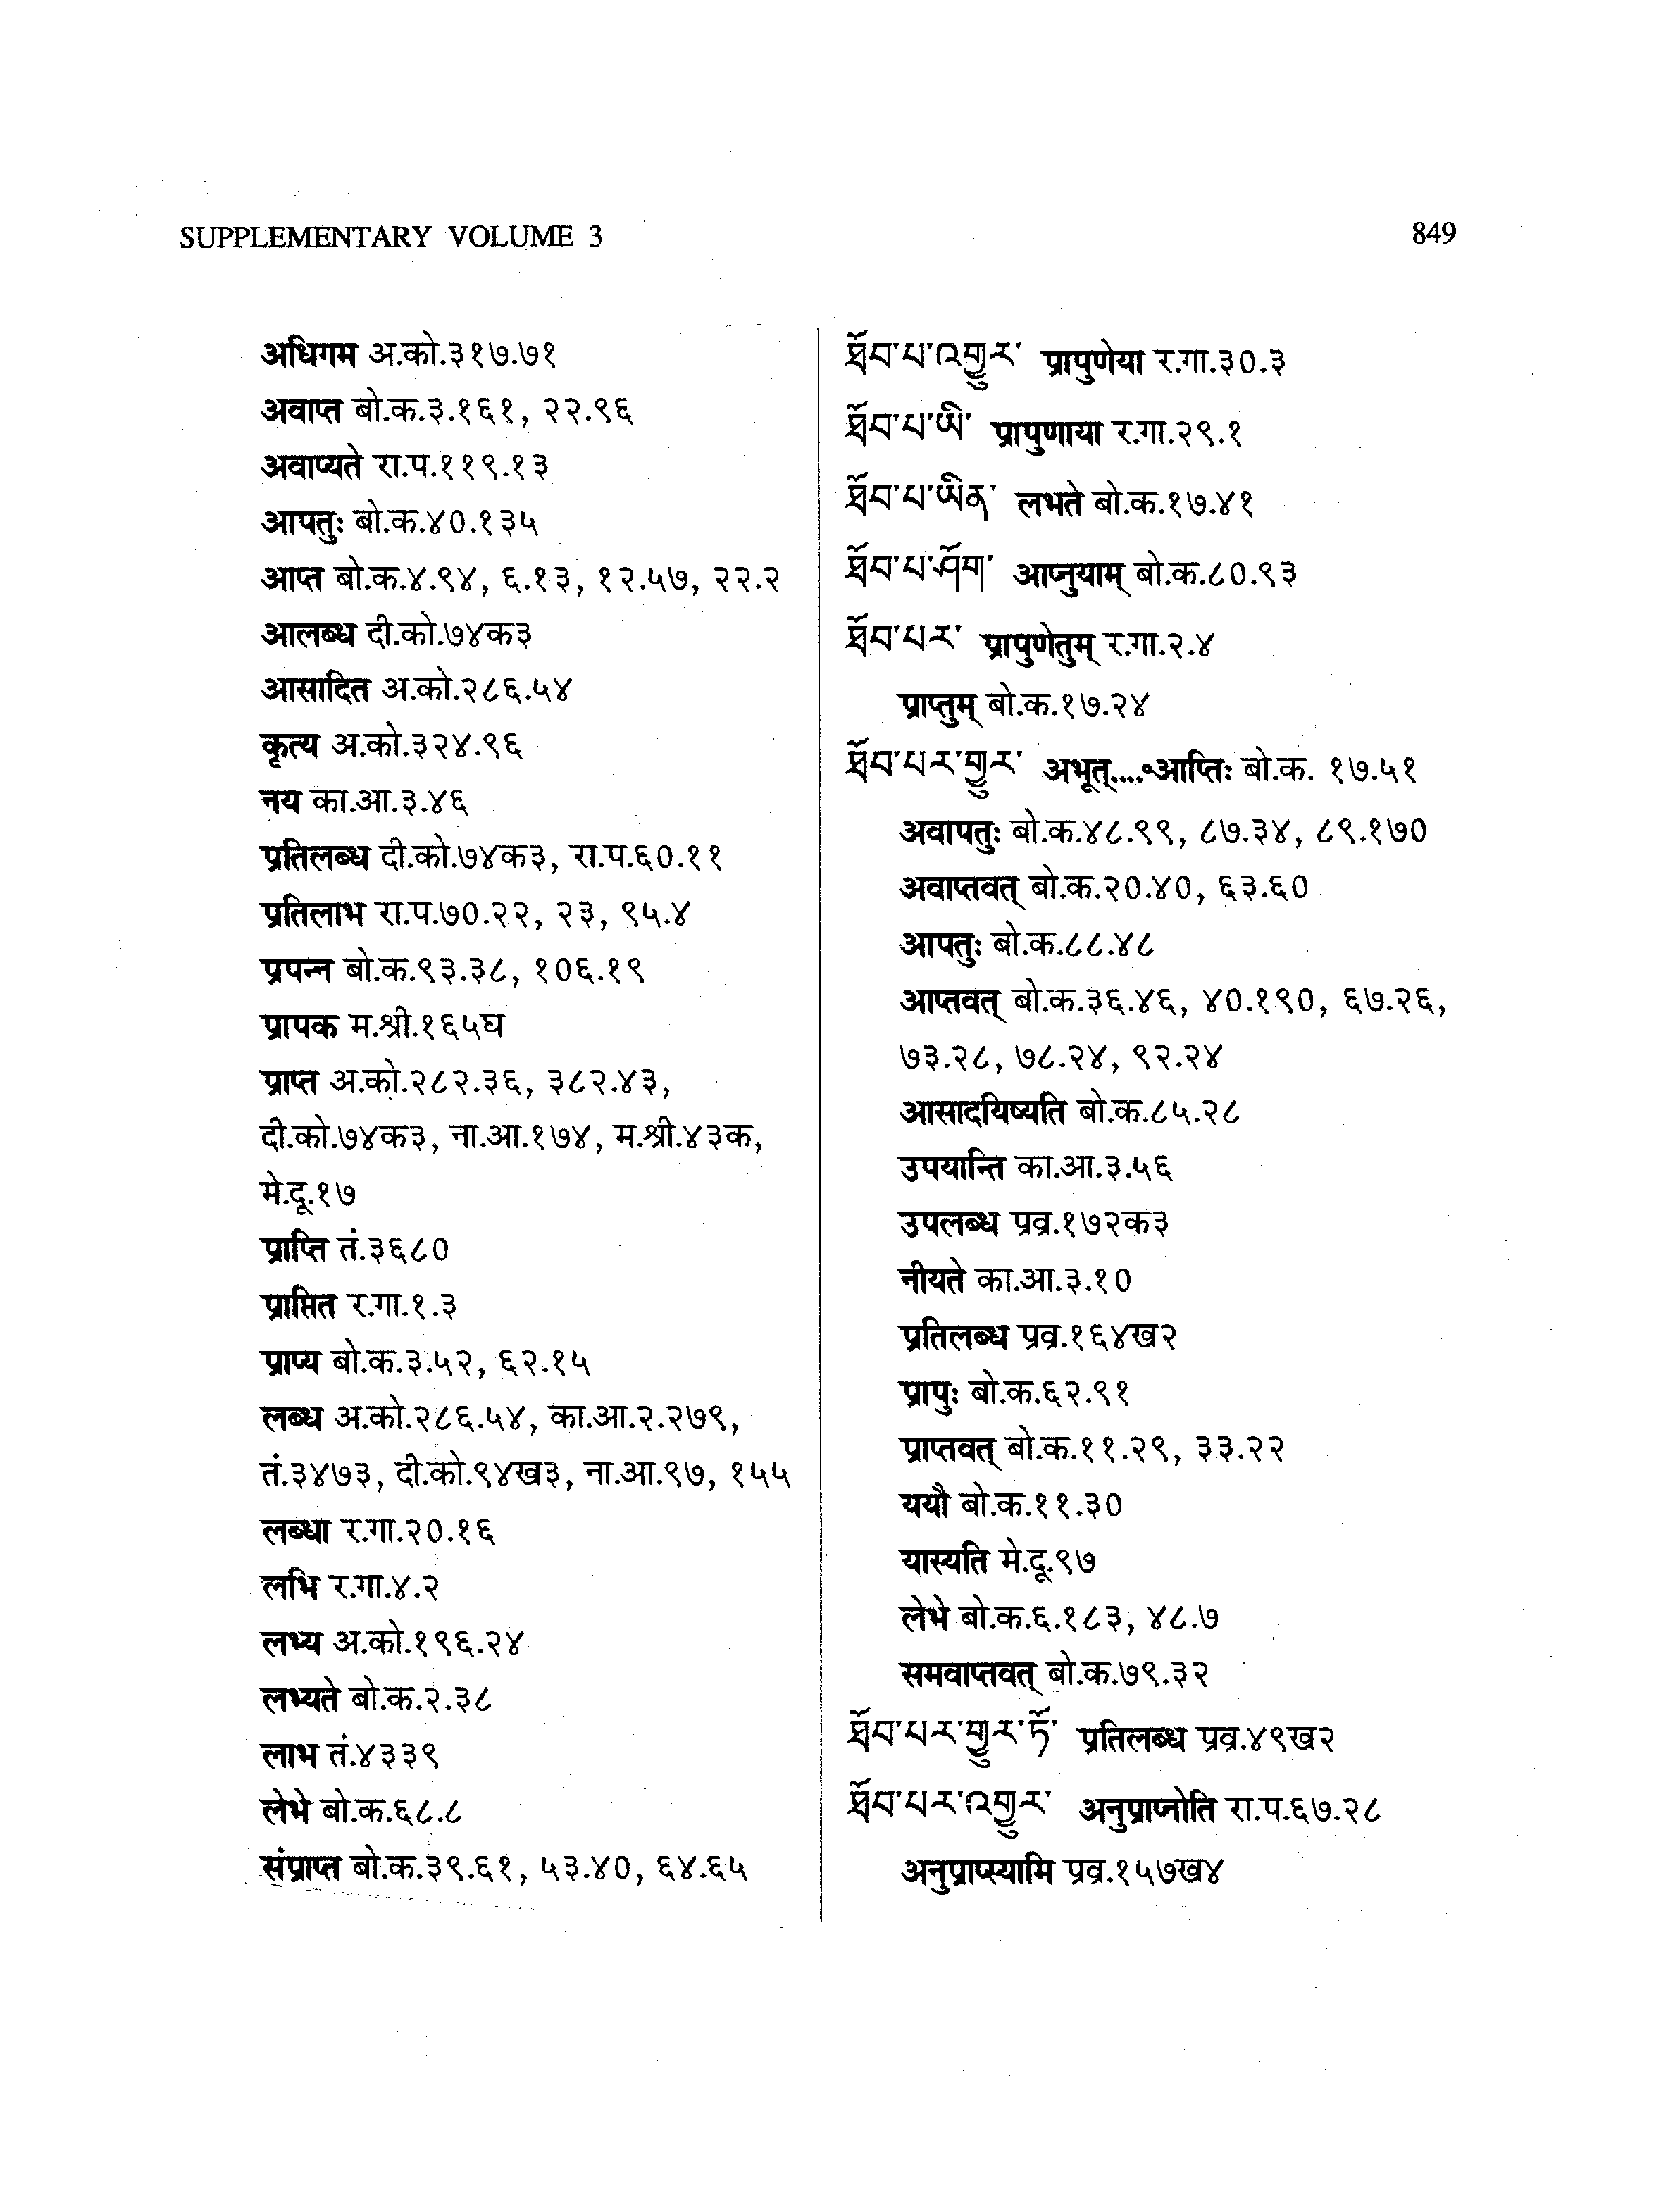 SUPPLEMENTARY VOLUME 3
849
अधिगम अ.को.३१७.७१
अवाप्त बो.क.३.१६१, २२.९६
अवाप्यते रा.प.११९.१३
आपतुः बो.क.४०.१३५
आप्त बो.क.४.९४, ६.१३, १२.५७, २२.२
आलब्ध दी.को.७४क३
आसादित अ.को.२८६.५४
कृत्य अ.को.३२४.९६
नय का.आ.३.४६
प्रतिलब्ध दी.को.७४क३, रा.प.६०.११
प्रतिलाभ रा.प.७०.२२, २३, ९५.४
प्रपन्न बो.क.९३.३८, १०६.१९
प्रापक म.श्री.१६५घ
प्राप्त अ.को.२८२.३६, ३८२.४३,
दी.को.७४क३, ना.आ.१७४, म.श्री.४३क,
मे.दू.१७
प्राप्ति तं.३६८०
प्राप्तित र.गा.१.३
प्राप्य बो.क.३.५२, ६२.१५
लब्ध अ.को.२८६.५४, का.आ.२.२७९,
तं.३४७३, दी.को.९४ख३, ना.आ.९७, १५५
लब्धा र.गा.२०.१६
लभि र.गा.४.२
लभ्य अ.को.१९६.२४
लभ्यते बो.क.२.३८
लाभ तं.४३३९
लेभे बो.क.६८.८
संप्राप्त बो.क.३९.६१, ५३.४०, ६४.६५
ཐོབ་པ་འགྱུར་ प्रापुणेया र.गा.३०.३
ཐོབ་པ་ཡི་ प्रापुणाया र.गा.२९.१
ཐོབ་པ་ཡིན་ लभते बो.क.१७.४१
ཐོབ་པ་ཤོག་ आप्नुयाम् बो.क.८०.९३
ཐོབ་པར་ प्रापुणेतुम् र.गा.२.४
प्राप्तुम् बो.क.१७.२४
ཐོབ་པར་གྱུར་ अभूत्....॰आप्तिः बो.क. १७.५१
अवापतुः बो.क.४८.९९, ८७.३४, ८९.१७०
अवाप्तवत् बो.क.२०.४०, ६३.६०
आपतुः बो.क.८८.४८
आप्तवत् बो.क.३६.४६, ४०.१९०, ६७.२६,
७३.२८, ७८.२४, ९२.२४
आसादयिष्यति बो.क.८५.२८
उपयान्ति का.आ.३.५६
उपलब्ध प्रव्र.१७२क३
नीयते का.आ.३.१०
प्रतिलब्ध प्रव्र.१६४ख२
प्रापुः बो.क.६२.९१
प्राप्तवत् बो.क.११.२९, ३३.२२
ययौ बो.क.११.३०
यास्यति मे.दू.९७
लेभे बो.क.६.१८३, ४८.७
समवाप्तवत् बो.क.७९.३२
ཐོབ་པར་གྱུར་ཏོ་ प्रतिलब्ध प्रव्र.४९ख२
ཐོབ་པར་འགྱུར་ अनुप्राप्नोति रा.प.६७.२८
अनुप्राप्स्यामि प्रव्र.१५७ख४